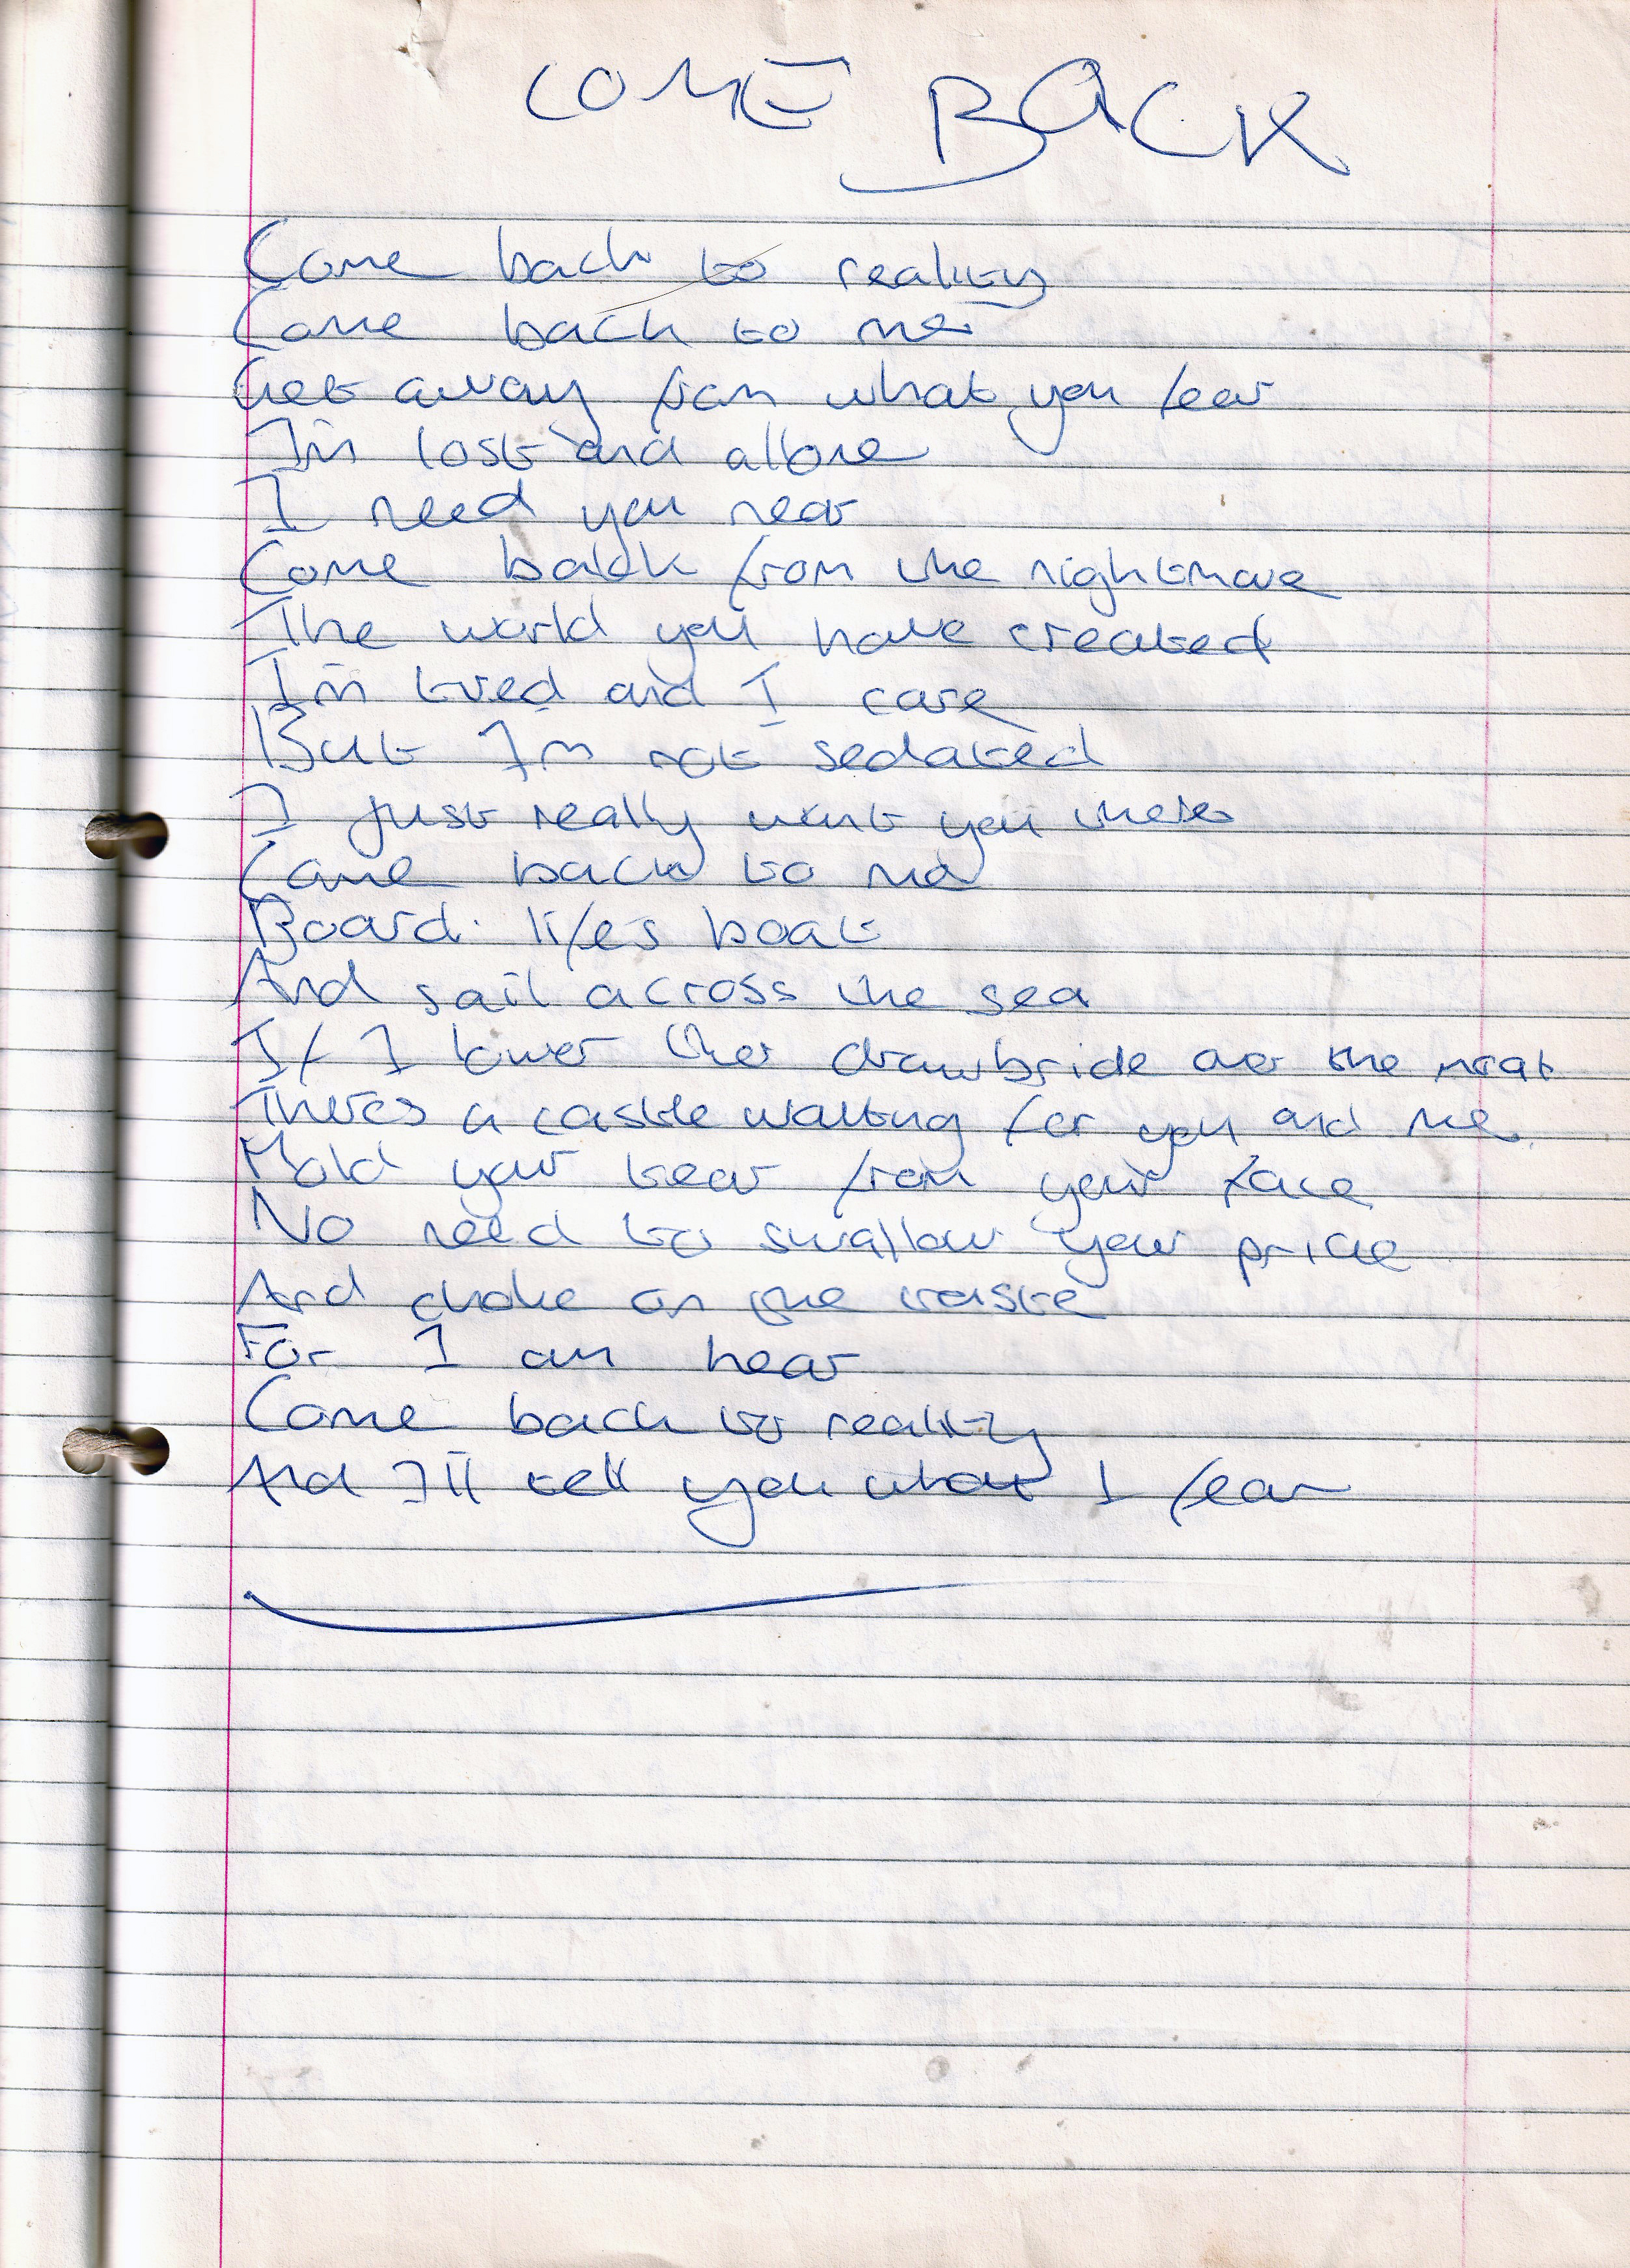 COME BACK
Come back to reality
Come back to me
Get away from what you fear
I'm lost and allone
I need you near
Come back from the nightmare
The world you have created
I'm tired and I care
But Im not sedated
I just really want you there
Come back to me
Board life's boat
And sail across the sea
If I lower ther drawbride over the moat
Theres a castle waiting for you and me
Hold your tear from your face
No need to swallow your pride
And choke on the taste
For I am hear
Come back to reality
And I'll tell you what I fear